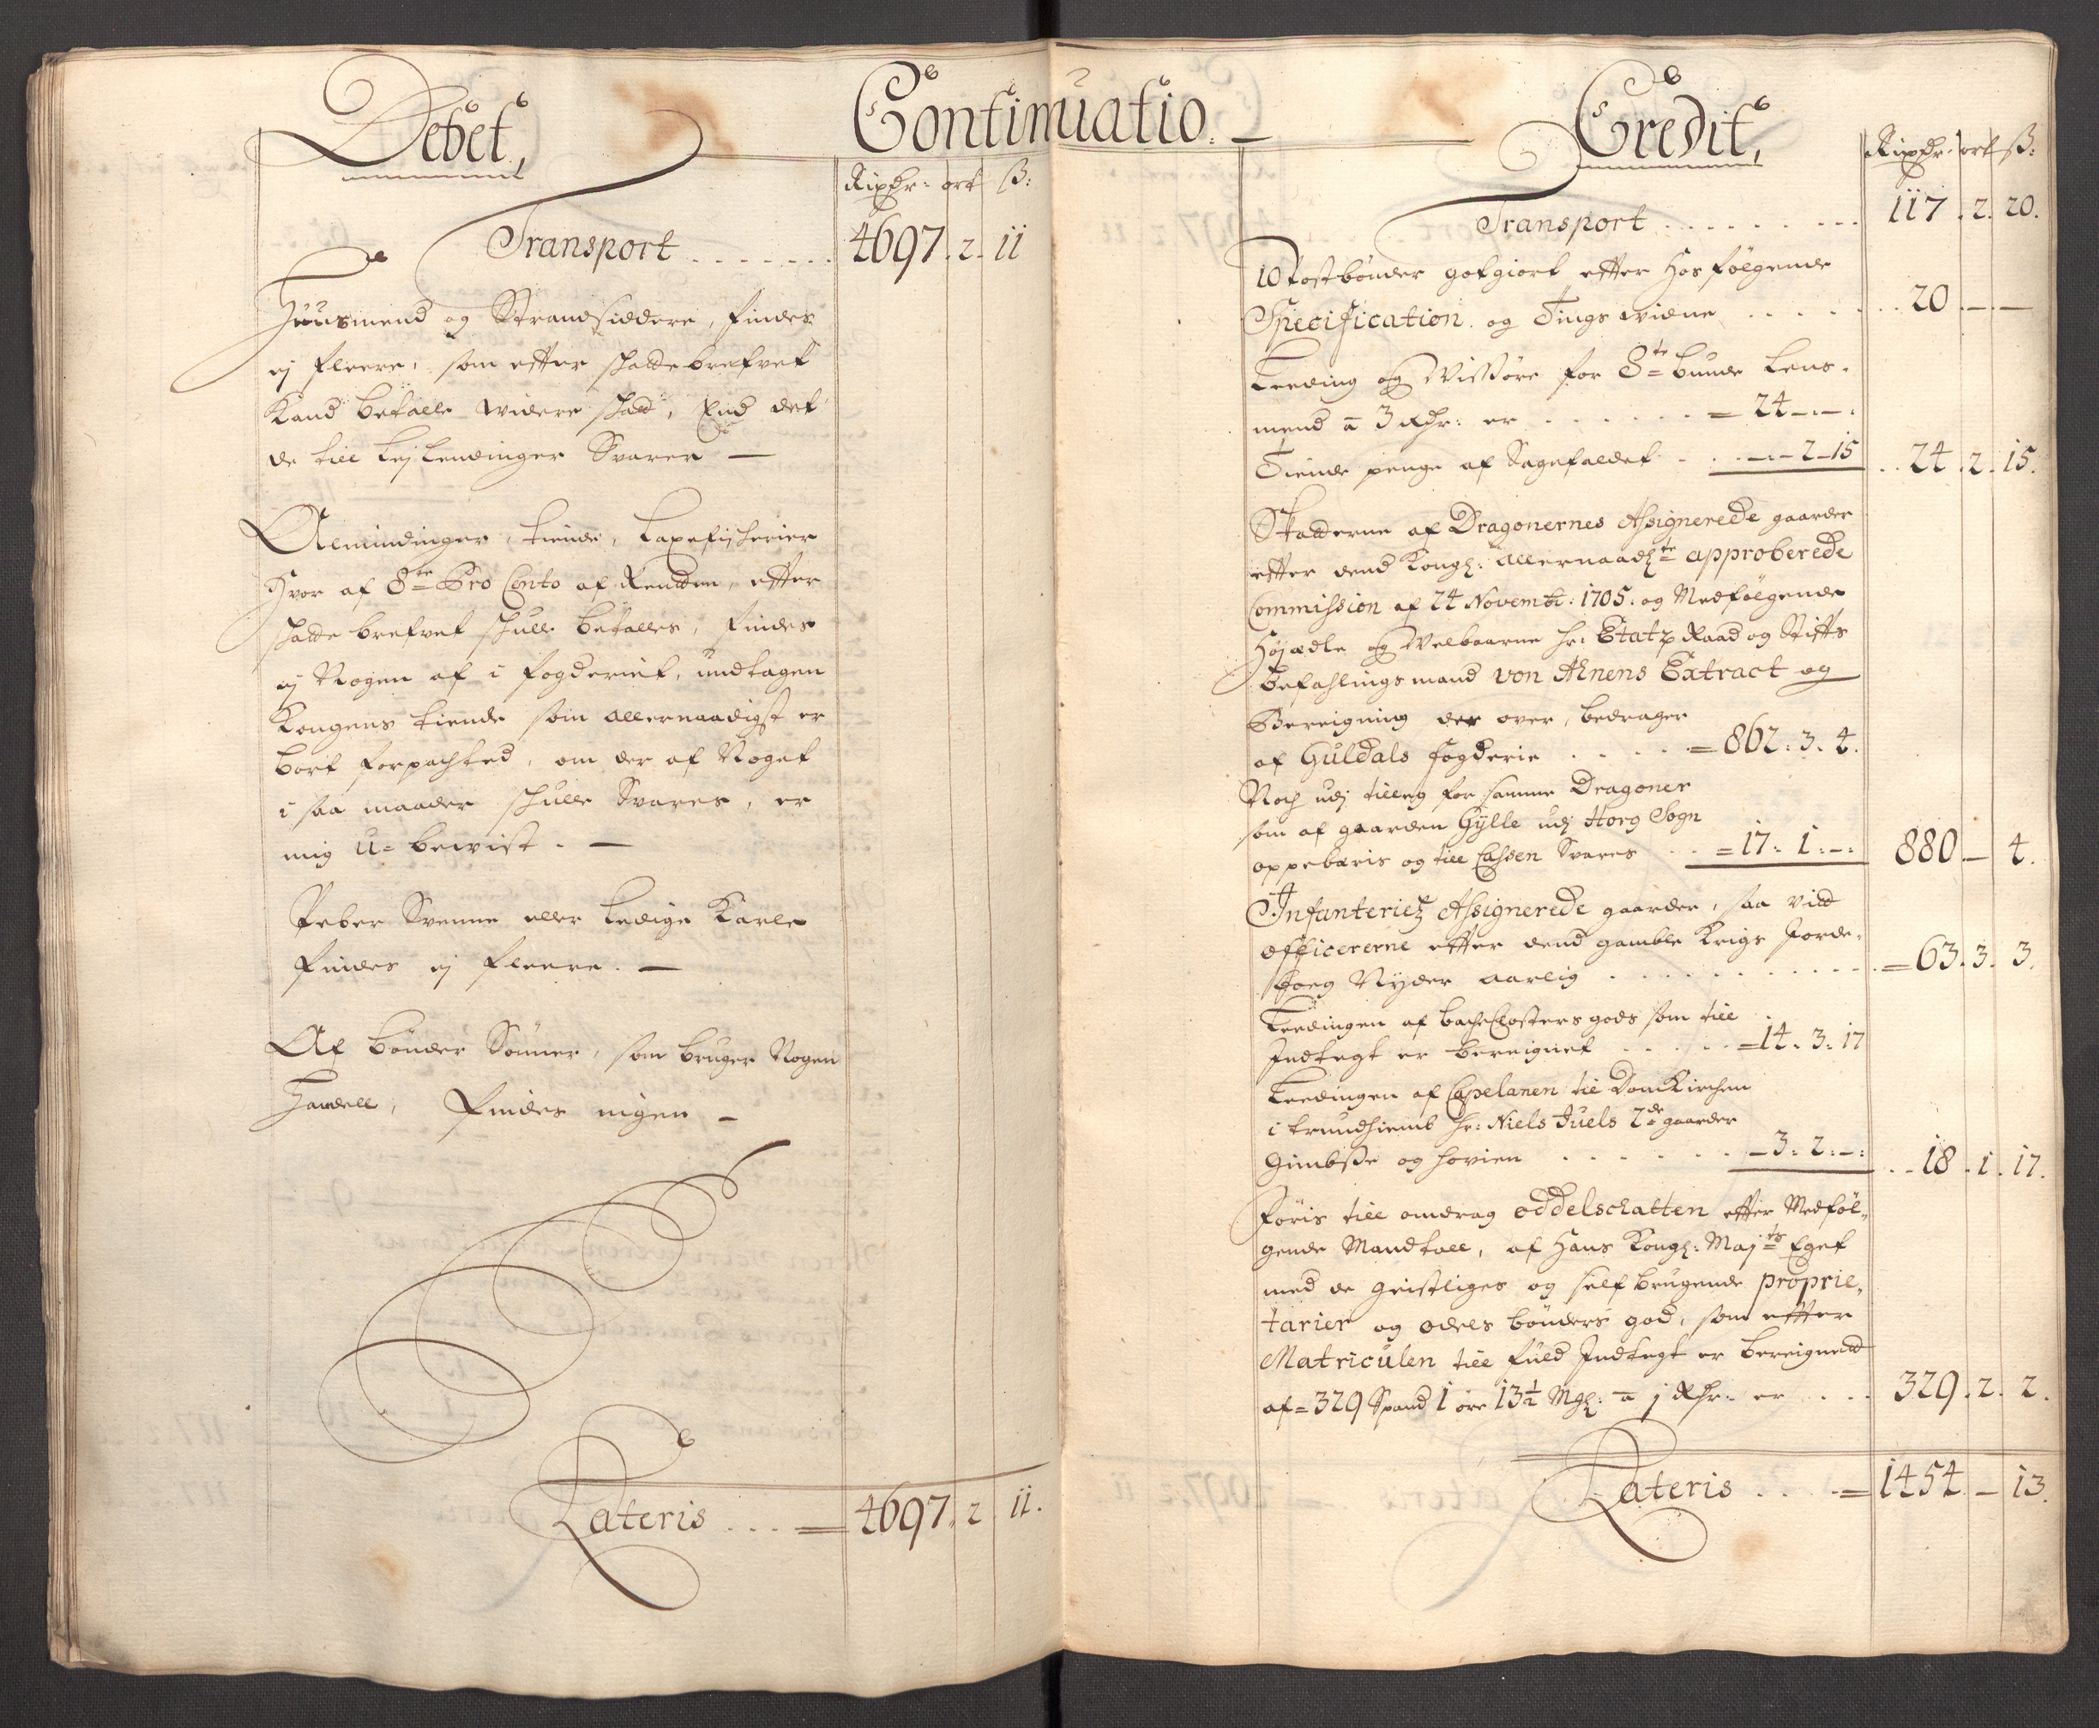 Debet, Continuatio. Credit,
Rixdr: ort ß:
Transport . . . . . . . 4697. 2. 11
Huusmend og Strandsiddere, findes
ej fleere, som efter schattebrefvet
Kand betalle widere schatt, End det
de till Lejlendinger Svarer —
Almindinger, tiende, Laxefischerier
hvor af 8te Pro Cento af Rendten, efter
schatte brefvet schulle betalles, findes
ej Nogen af i fogderiet, undtagen
Kongens tiende som allernaadigst er
bort forpachted, om der af Noget
i saa maader schulle Svares, er
mig U-bewist. —
Peber Svenne eller Ledige Karle
findes ej fleere. —
Af bønder Sønner, som bruger Nogen
Handell, findes ingen —
Lateris . . . = 4697. 2. 11.
Rixdr: ort ß:
Transport . . . . . . . . . 117. 2. 20.
10 Postbønder gotgiort efter Hosfølgende
Specification og Tings widne . . . . . . . 20 — —
Leeding og Wissøre for 8te bunde Lens-
mend a 3 Rdr: er . . . . . . = 24 —.—.
Tiende penge af Sagefaldet . . . —.— 2 — 15 . . 24. 2. 15.
Skatterne af Dragonernes Assignerede gaarder
efter dend Kongl: allernaadste approberede
Commission af 24 Novembr: 1705. og Medfølgende
Højædle og Velbaarne hr: Etatz Raad og Stifts
befahlingsmand von Ahnens Extract og
Bereigning der over, bedrager
af Guldals fogderie . . . . . = 862. 3. 4.
Noch udj tilleg for samme Dragoner
som af gaarden Gylle udj Horg Sogn
oppebæris og till Cassen Svares . . = 17. 1. —. 880 — 4.
Infanteriez Assignerede gaarder, saa vitt
officererne efter dend gamble Krigs Jorde-
boeg Nyder aarlig . . . . . . . . . . . = 63. 3. 3.
Leedingen af bache Closters gods som till
Indtegt er bereignet . . . . . = 14. 3. 17
Leedingen af Capelanen til DomKirchen
i trundhiemb hr: Niels Juels 2de gaarder
Gimbsse og hovien . . . . . . — 3. 2. —. . . 18. 1. 17.
Føris till omdrag oddelschatten efter Medføl-
gende Mandtall, af Hans Kongl: Majts Eget
med de geistliges og selfbrugende proprie-
tarier og odels bønders god, som efter
Matriculen till fuld Indtegt er bereignett
af = 329 Spand 1 øre 13½ Mgl: a 1 Rdr: er . . . 329. 2. 2.
Lateris . . . . = 1454 — 13.